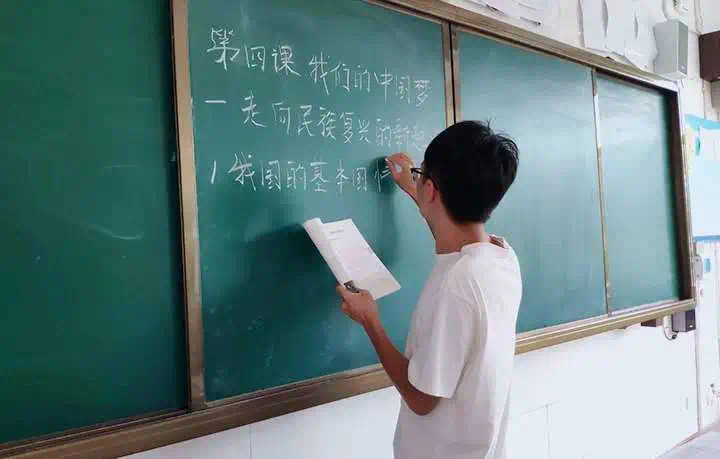 第四课 我们的中国梦
一 走向民族复兴的新起
1 我国的基本国情